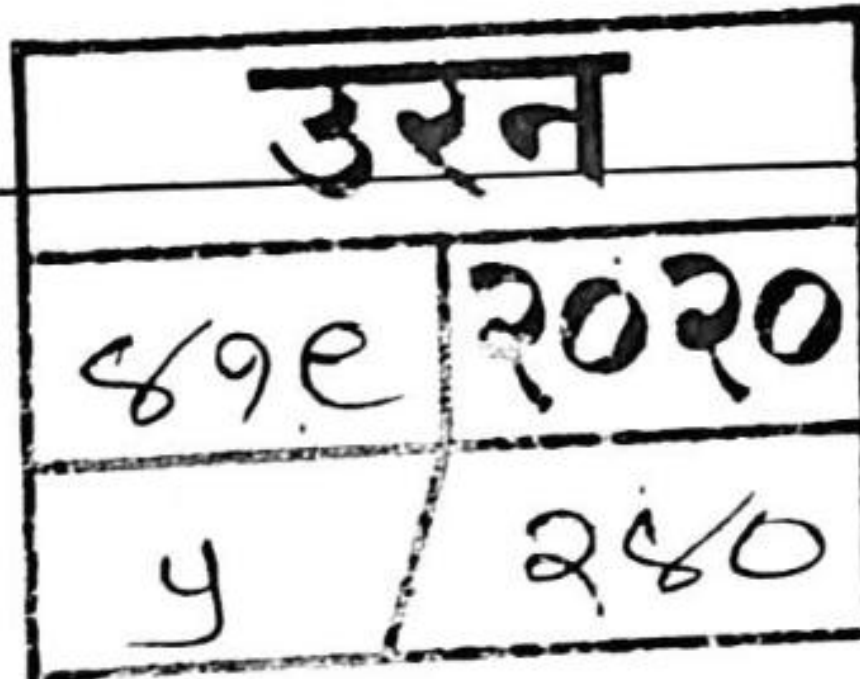 उरन
४१९ २०२०
५ २४०